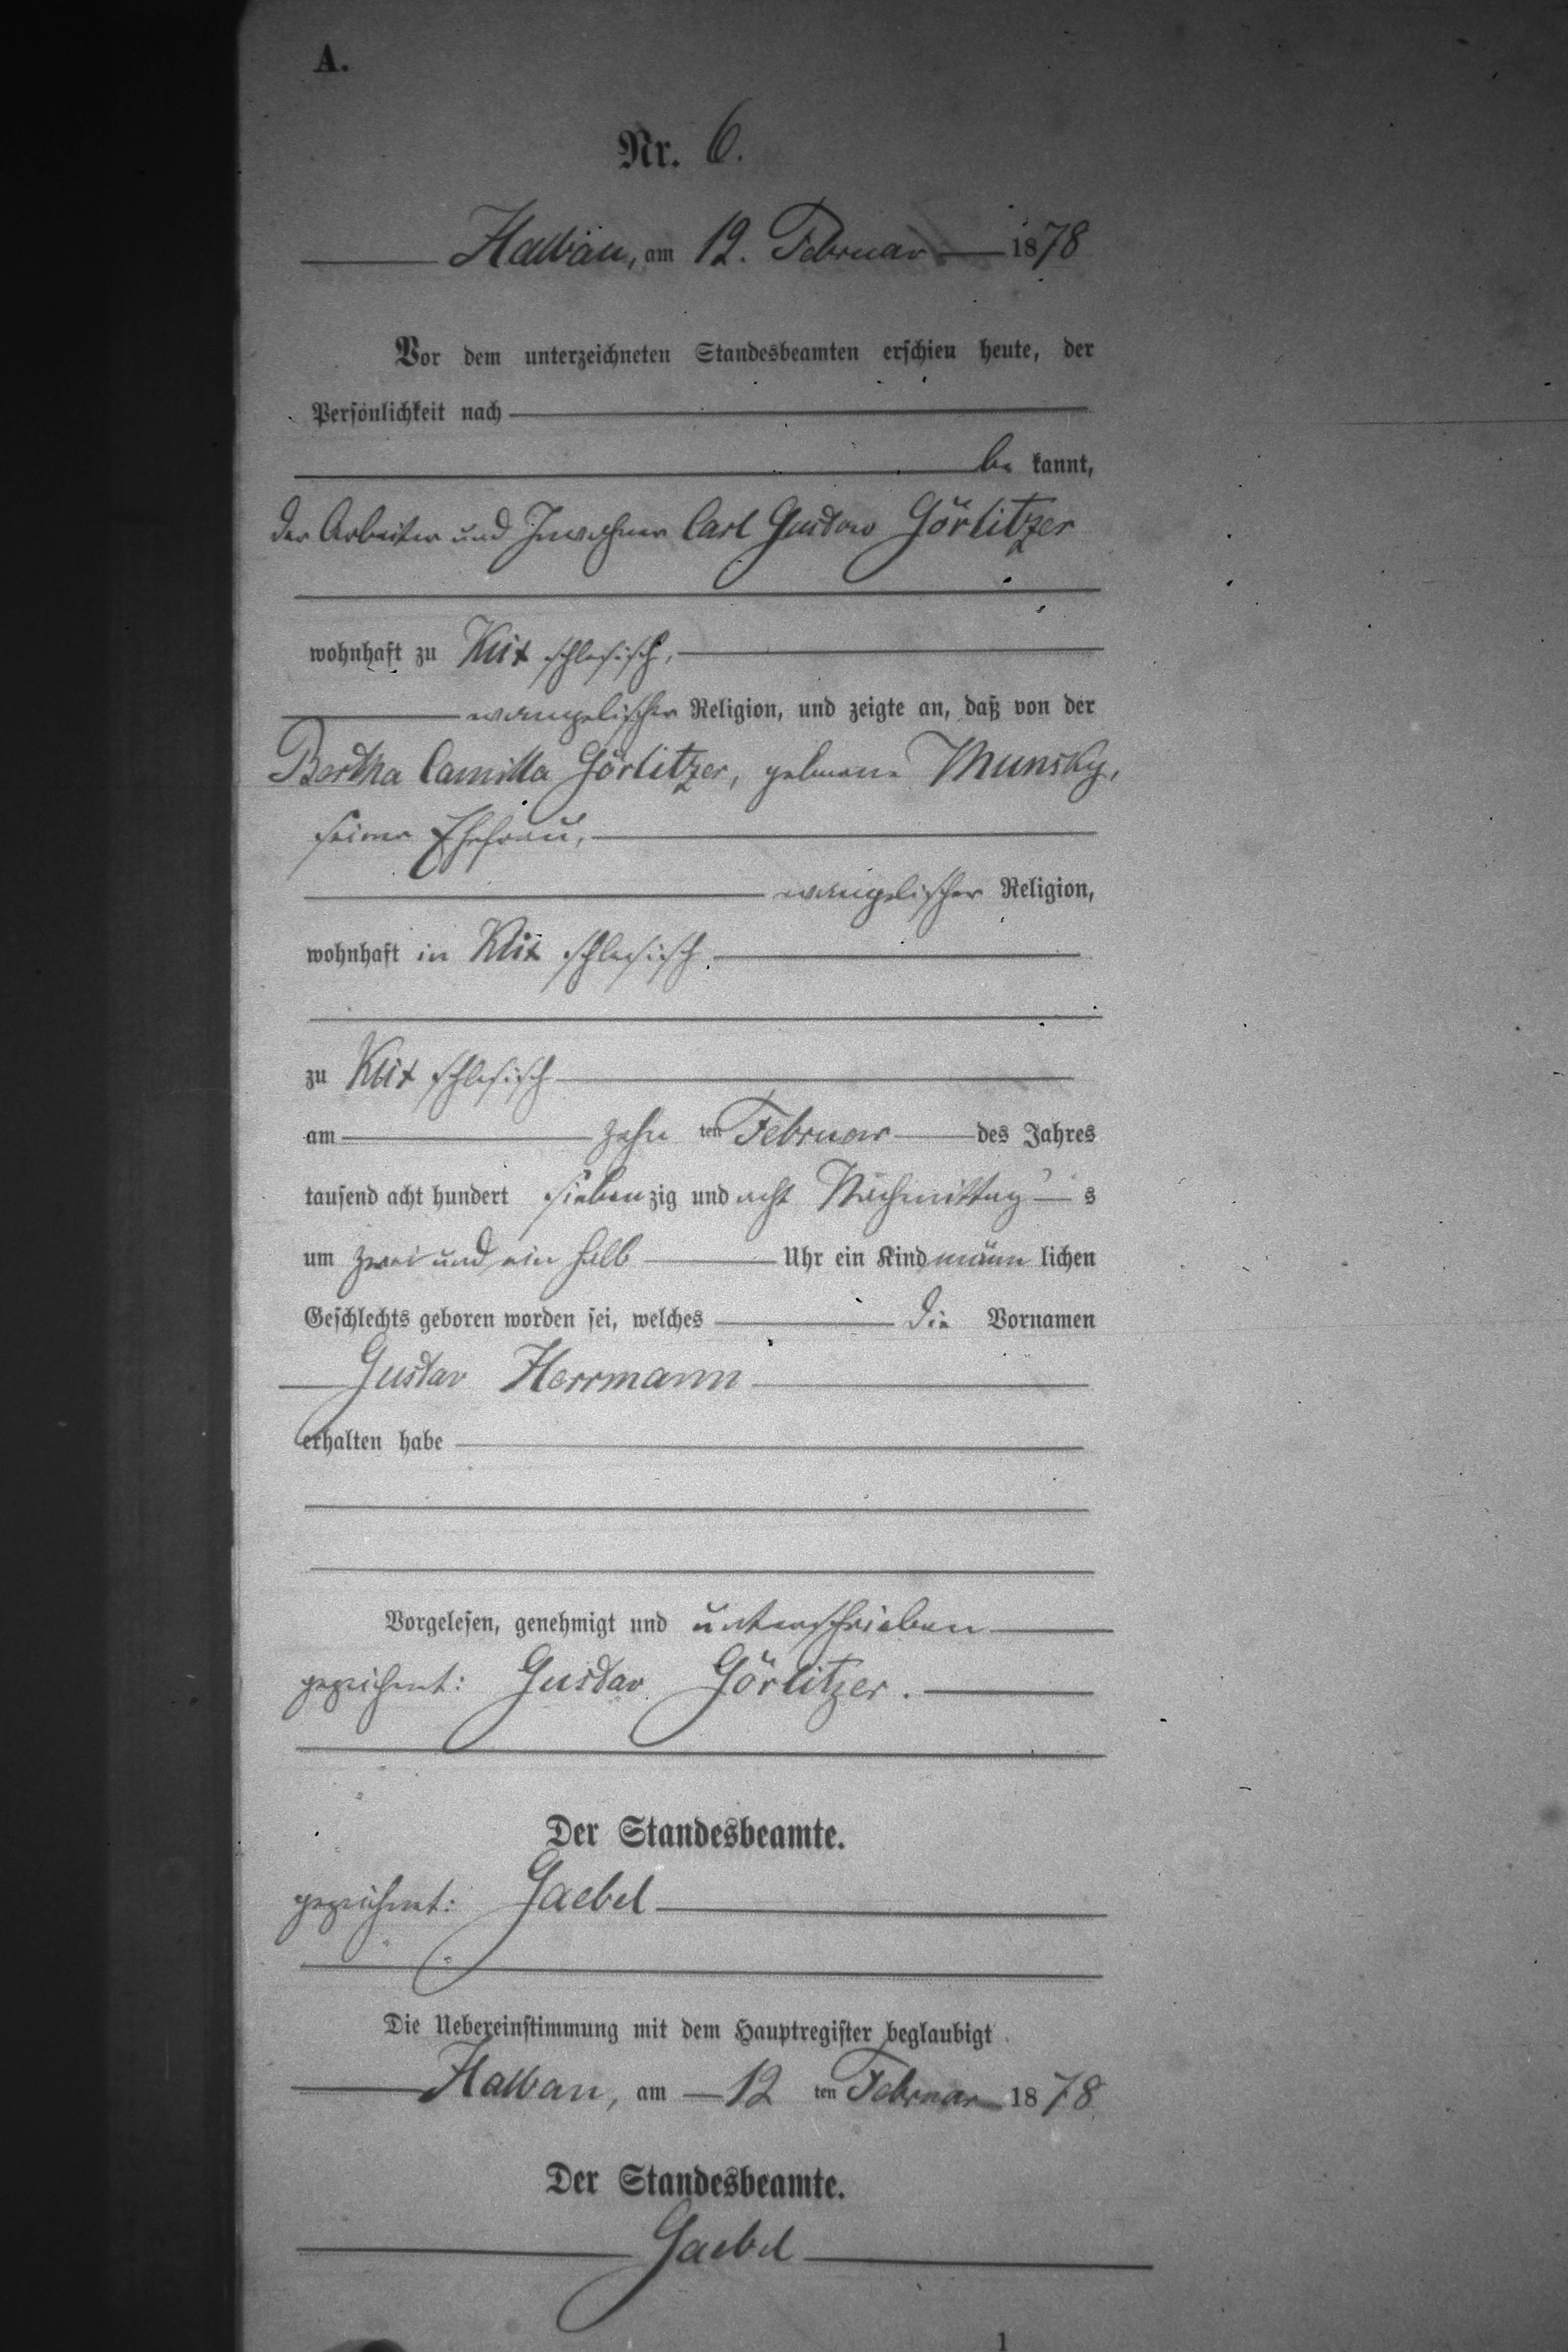 A.
Nr. 6.
Halbau, am 12. Februar 1878
Vor dem unterzeichneten Standesbeamten erschien heute, der
Persönlichkeit nach
be kannt,
der Arbeiter und Inwohner Carl Gustav Görlitzer
wohnhaft zu Klix schlesisch,
evangelischer Religion, und zeigte an, daß von der
Bertha Camilla Görlitzer, geborene Munsky,
seiner Ehefrau,
evangelischer Religion,
wohnhaft in Klix schlesisch.
zu Klix schlesisch
am zehn ten Februar des Jahres
tausend acht hundert siebenzig und acht Nachmittag s
um zwei und ein halb Uhr ein Kind männ lichen
Geschlechts geboren worden sei, welches die Vornamen
Gustav Herrmann
erhalten habe
Vorgelesen, genehmigt und unterschrieben
gezeichnet: Gustav Görlitzer.
Der Standesbeamte.
gezeichnet: Gaebel
Die Uebereinstimmung mit dem Hauptregister beglaubigt
Halbau, am 12 ten Februar 1878
Der Standesbeamte.
Gaebel
1